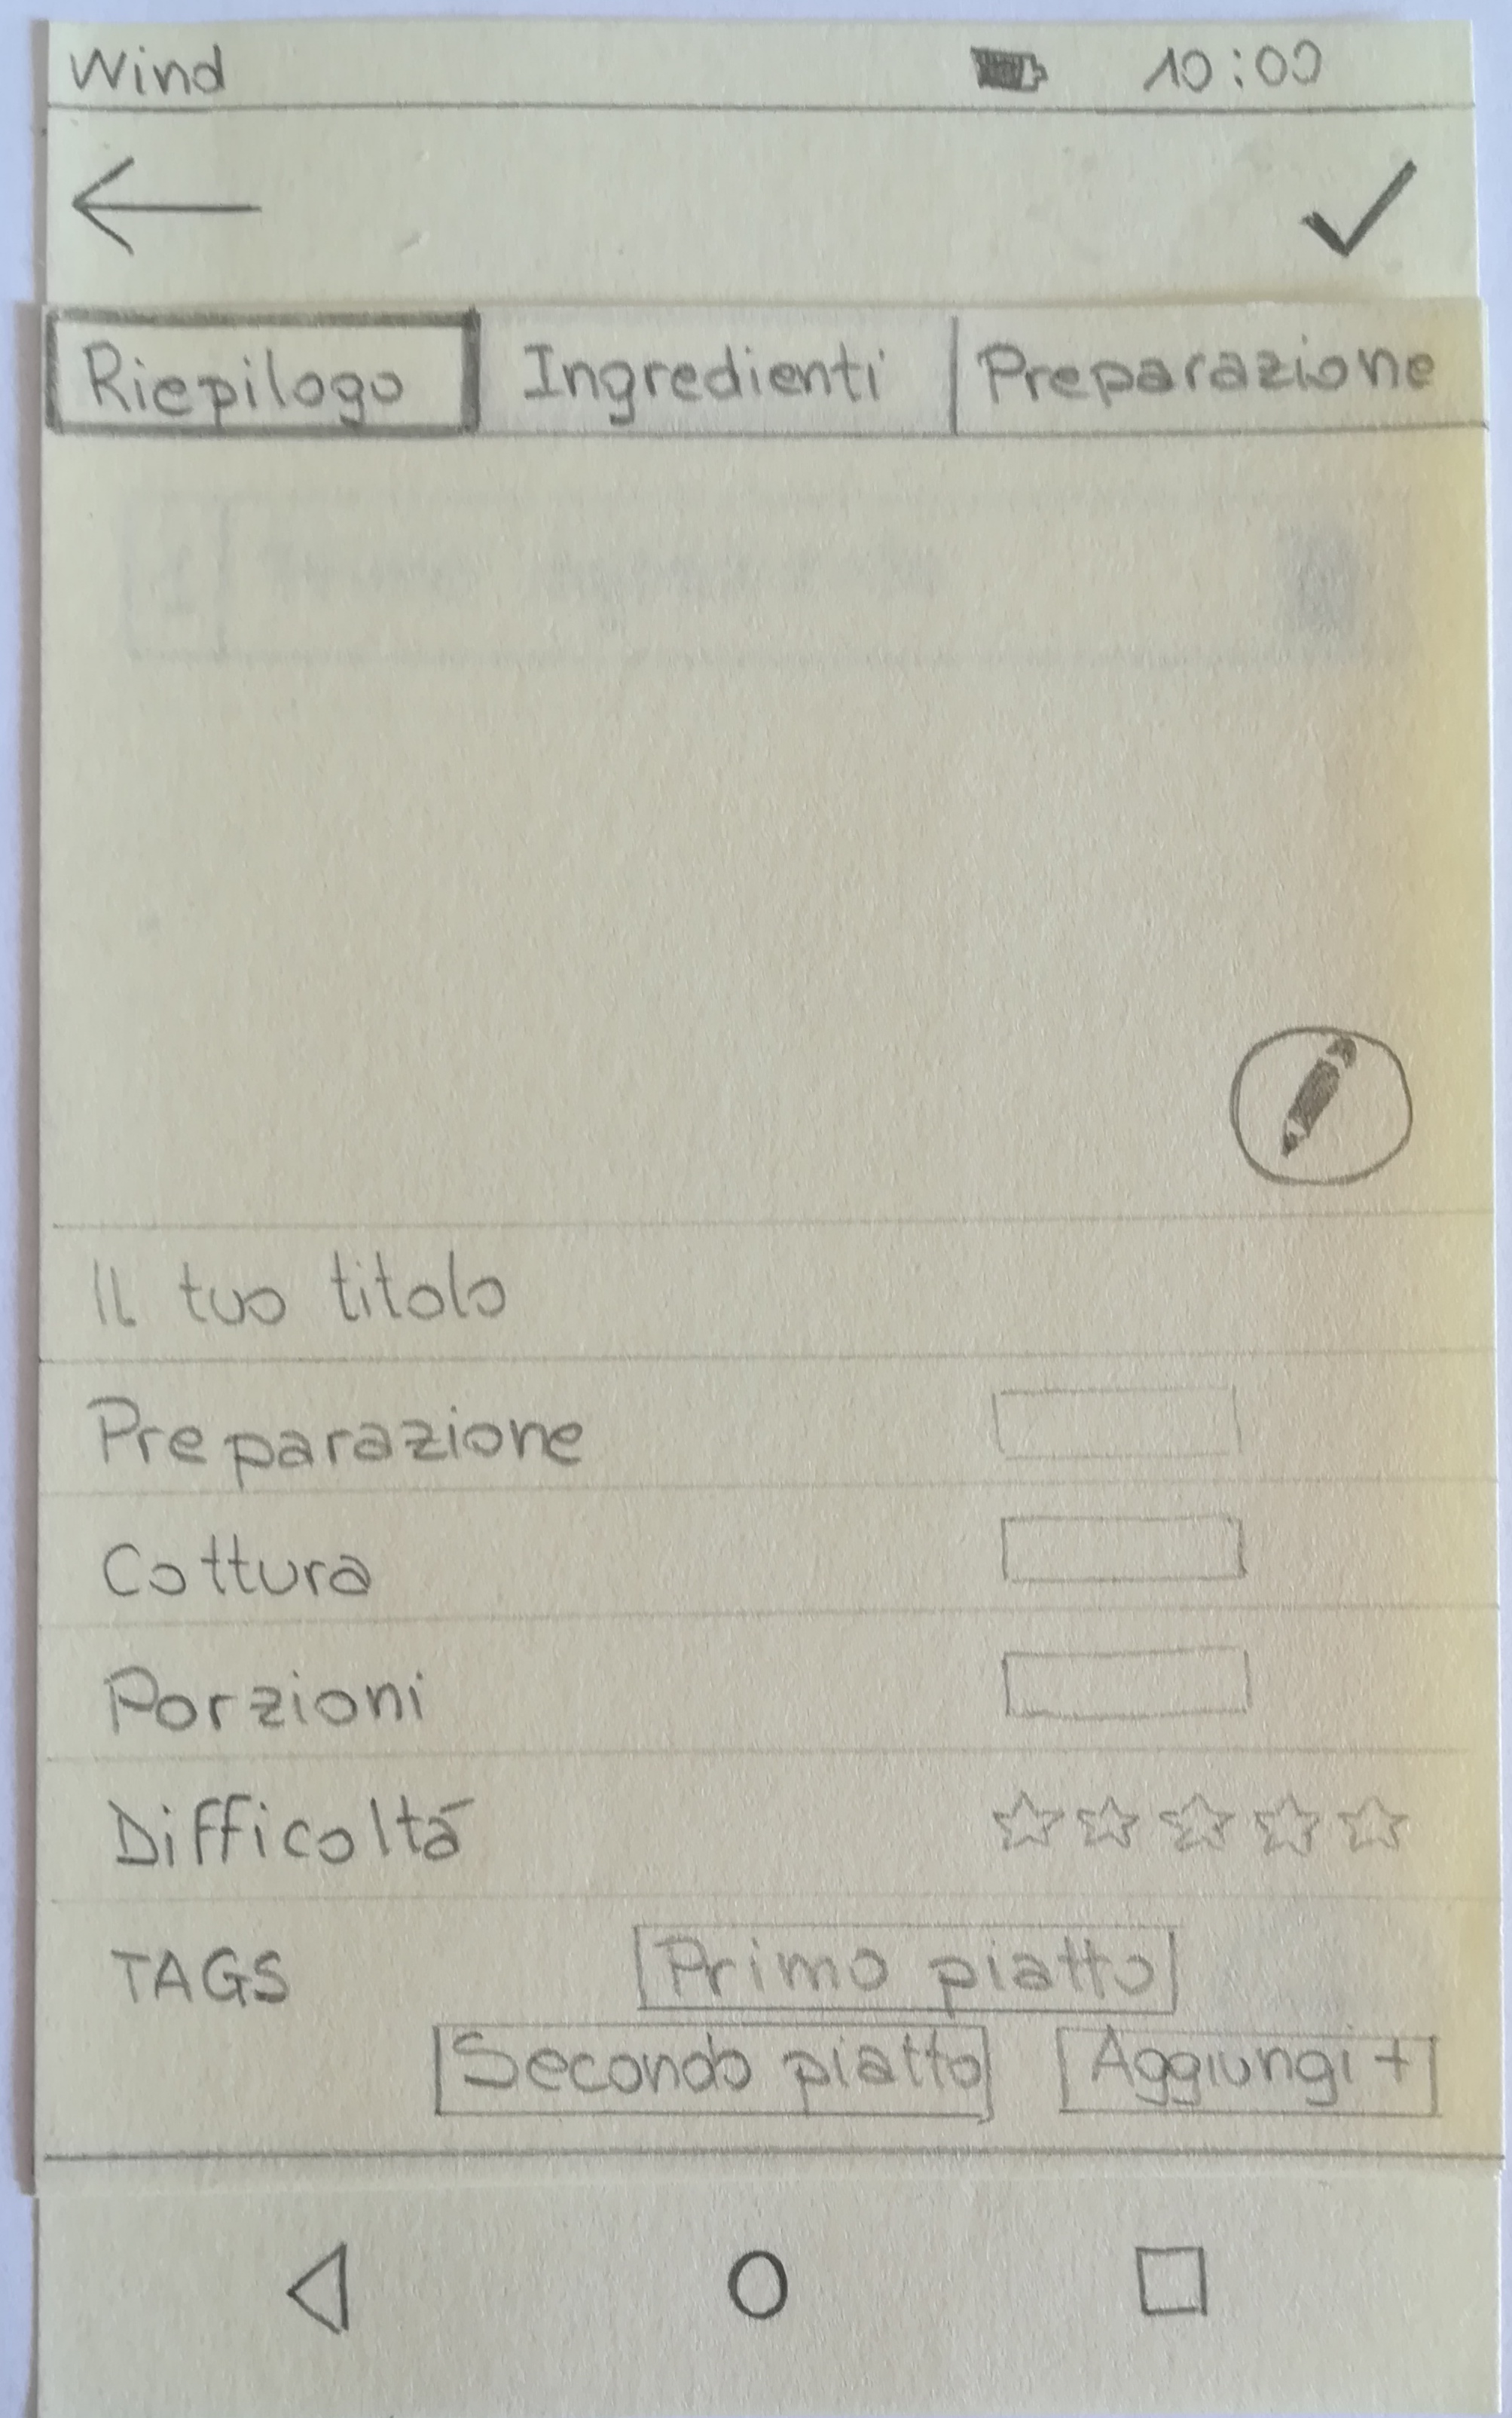 Wind 10:00
Riepilogo Ingredienti Preparazione
Il tuo titolo
Preparazione
Cottura
Porzioni
Difficoltá
TAGS Primo piatto
Secondo piatto Aggiungi +